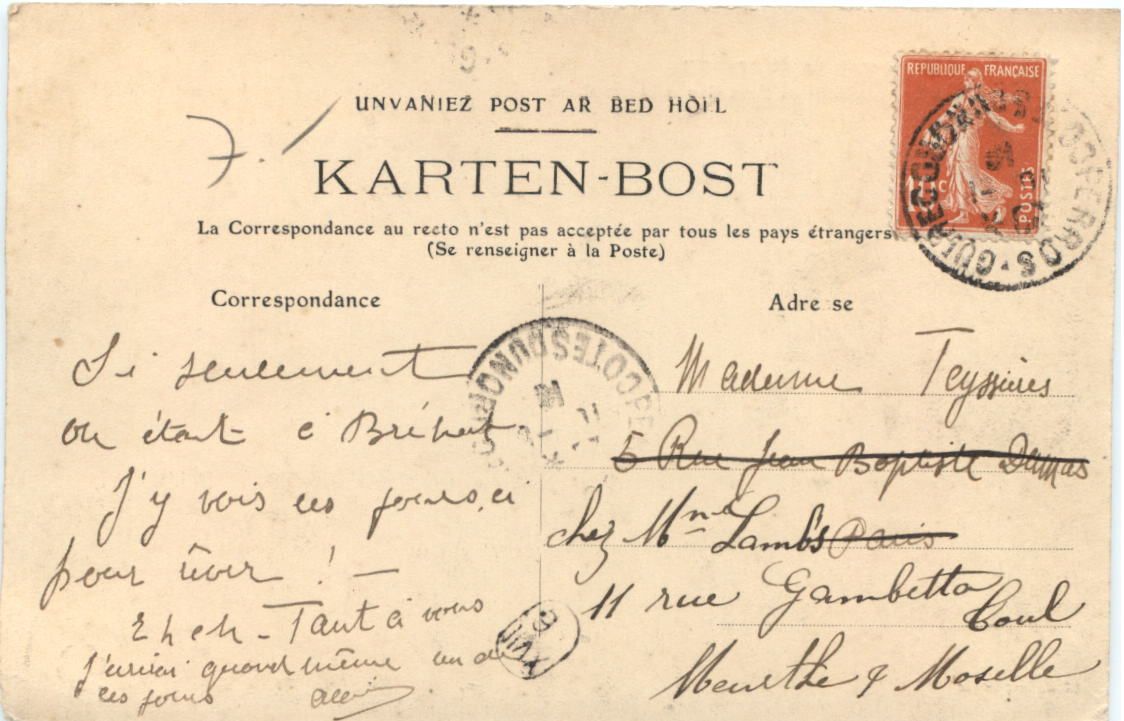 UNVANIEZ POST AR BED HOLL
KARTEN-BOST
La Correspondance au recto n'est pas acceptée par tous les pays étrangers
(Se renseigner à la Poste)
REPUBLIQUE FRANÇAISE
10 c
POSTES
PERROS-GUIREC
COTES DU NORD
Correspondance
Si seulement
on étant à Bréhat
J'y vois ces jours ci
pour
! —
Eh eh - Tant à vous
J'arrivai quand même un de
ces jours
Adresse
Madame Teyssières
5 Rue Jean Baptiste Dumas
chez Mme Lambs Paris
11 rue Gambetta
Toul
Meurthe & Moselle
COTES DU NORD